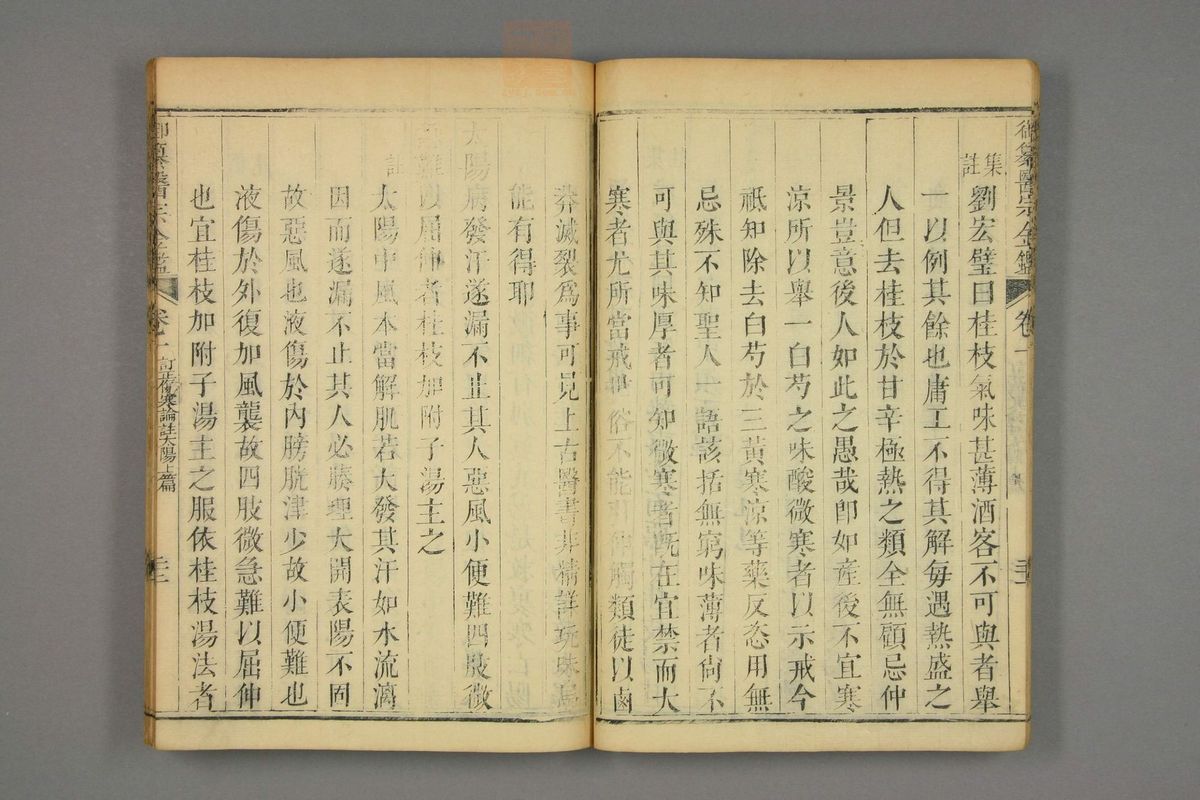 御纂醫宗金鑑 卷一
集註 劉宏璧曰桂枝氣味甚薄酒客不可與者舉
一以例其餘也庸工不得其解每遇熱盛之
人但去桂枝於甘辛極熱之類全無顧忌仲
景豈意後人如此之愚哉卽如產後不宜寒
涼所以舉一白芍之味酸微寒者以示戒今
祗知除去白芍於三黃寒涼等藥反恣用無
忌殊不知聖人一語該括無窮味薄者尙不
可與其味厚者可知微寒者旣在宜禁而大
寒者尤所當戒俗不能觸類徒以鹵
莽滅裂爲事可見上古醫書非精詳玩味烏
能有得耶
太陽病發汗遂漏不止其人惡風小便難四肢微
急難以屈伸者桂枝加附子湯主之
註 太陽中風本當解肌若大發其汗如水流漓
因而遂漏不止其人必腠理大開表陽不固
故惡風也液傷於內膀胱津少故小便難也
液傷於外復加風襲故四肢微急難以屈伸
也宜桂枝加附子湯主之服依桂枝湯法者
御纂醫宗金鑑 卷一 訂正傷寒論註太陽上篇